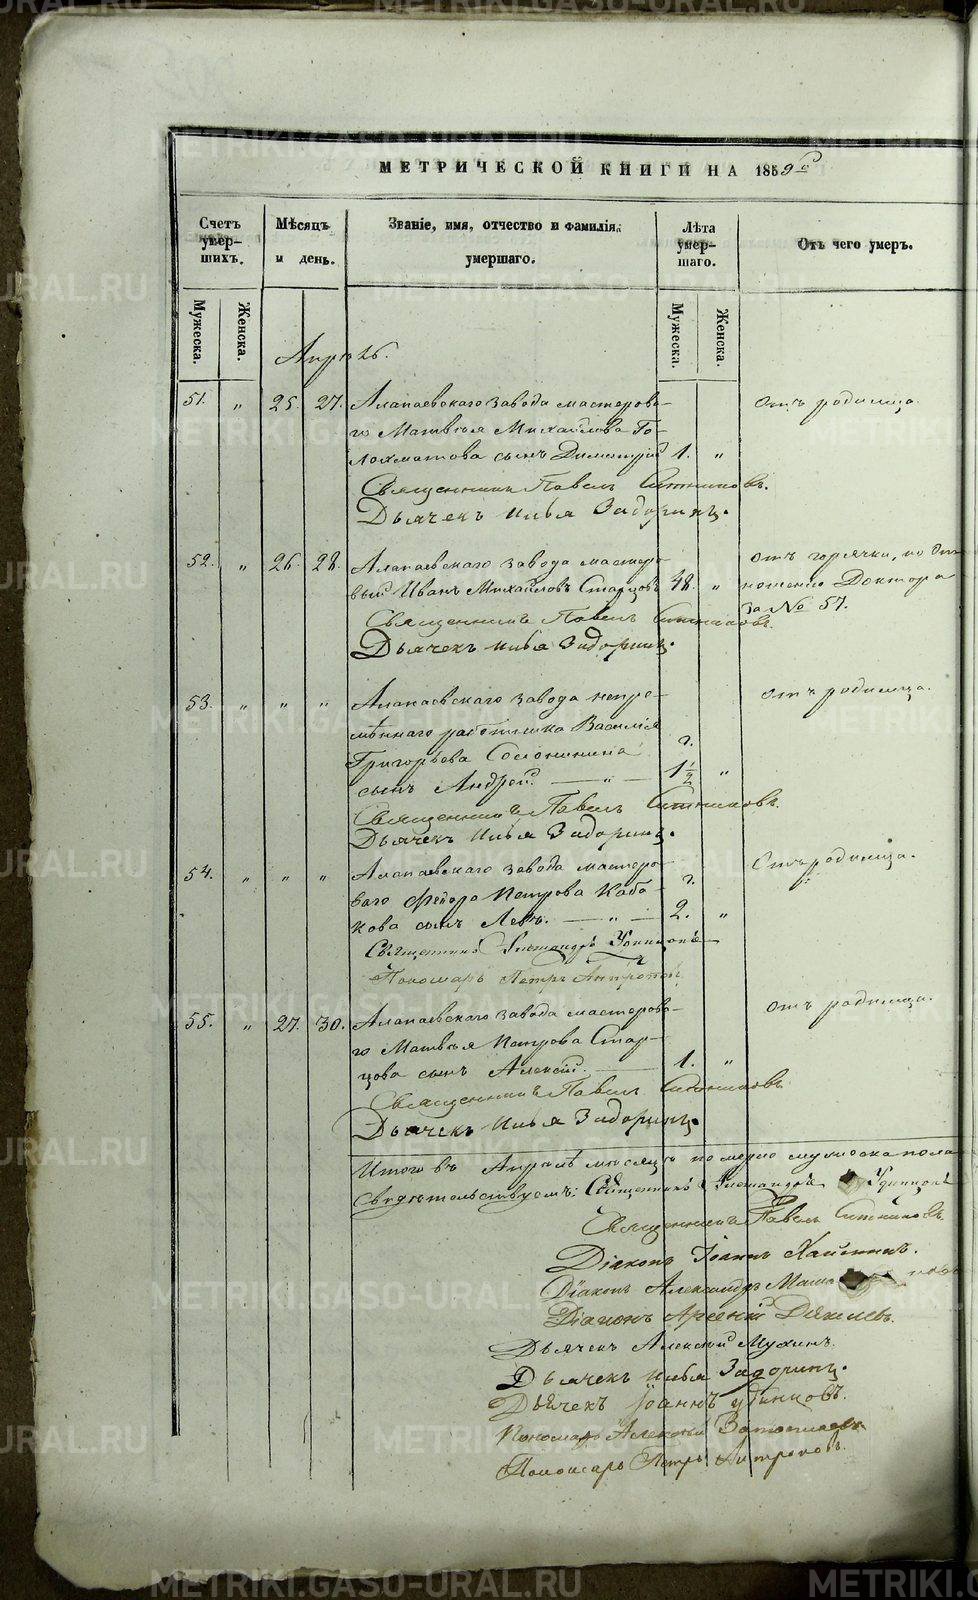 МЕТРИЧЕСКОЙ КНИГИ НА 1859 го
Счетъ умер-шихъ.
Мѣсяцъ и день.
Званіе, имя, отчество и фамилія умершаго.
Лѣта умер-шаго.
Отъ чего умеръ.
Мужеска.
Женска.
Мужеска.
Женска.
51. „ 25. 27. Алапаевскаго завода мастерова-
го Матвѣя Михайлова
сынъ Димитрій 1. „
отъ родимца.
Священникъ Павелъ Ситниковъ.
Дьячекъ Илья Задоринъ.
52. „ 26. 28. Алапаевскаго завода мастеро-
вый Иванъ Михайловъ Старцовъ 48. „
отъ горячки, по от-
ношенію Доктора
за № 57.
Священникъ Павелъ Ситниковъ.
Дьячекъ Илья Задоринъ.
53. „ „ „ Алапаевскаго завода непре-
мѣннаго работника Василія
Григорьева
сынъ Андрей. — „ — г. 1 1/2 „
отъ родимца.
Священникъ Павелъ Ситниковъ.
Дьячекъ Илья Задоринъ.
54. „ „ „ Алапаевскаго завода мастеро-
ваго Федора Петрова Каба-
кова сынъ Левъ. — „ — г. 2. „
Отъ родимца.
Священникъ Александръ Удинцовъ
Пономарь Петръ Антроповъ
55. „ 27. 30. Алапаевскаго завода мастерова-
го Матвѣя Петрова Стар-
цова сынъ Алексѣй. — 1. „
отъ родимца.
Священникъ Павелъ Ситниковъ
Дьячекъ Илья Задоринъ.
Итого въ Апрѣлѣ мѣсяцѣ померло мужеска пола
Свидѣтельствуемъ: Священникъ Александръ Удинцовъ
Священникъ Павелъ Ситниковъ
Діаконъ Іоаннъ
Діаконъ Александръ
Діаконъ Арсеній
Дьячекъ Алексѣй Мухинъ.
Дьячекъ Илья Задоринъ.
Дьячекъ Іоаннъ Удинцовъ.
Пономарь Алексѣй
Пономарь Петръ Антроповъ.
METRIKI.GASO-URAL.RU